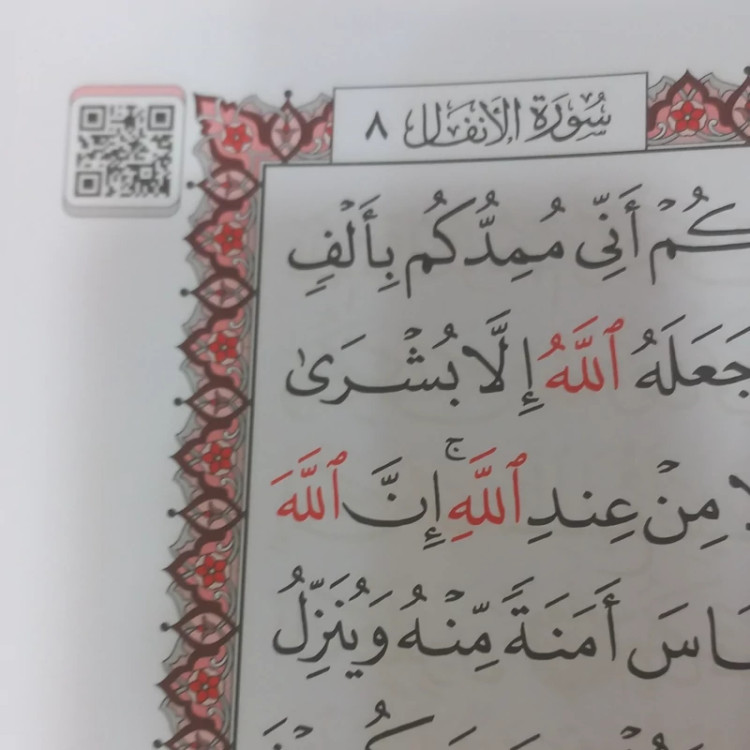 سُورَةُ الأَنفَالِ ٨
كُمْ أَنِّي مُمِدُّكُم بِأَلْفٍ
جَعَلَهُ ٱللَّهُ إِلَّا بُشْرَىٰ
مِنْ عِندِ ٱللَّهِۚ إِنَّ ٱللَّهَ
أَمَنَةً مِّنْهُ وَيُنَزِّلُ